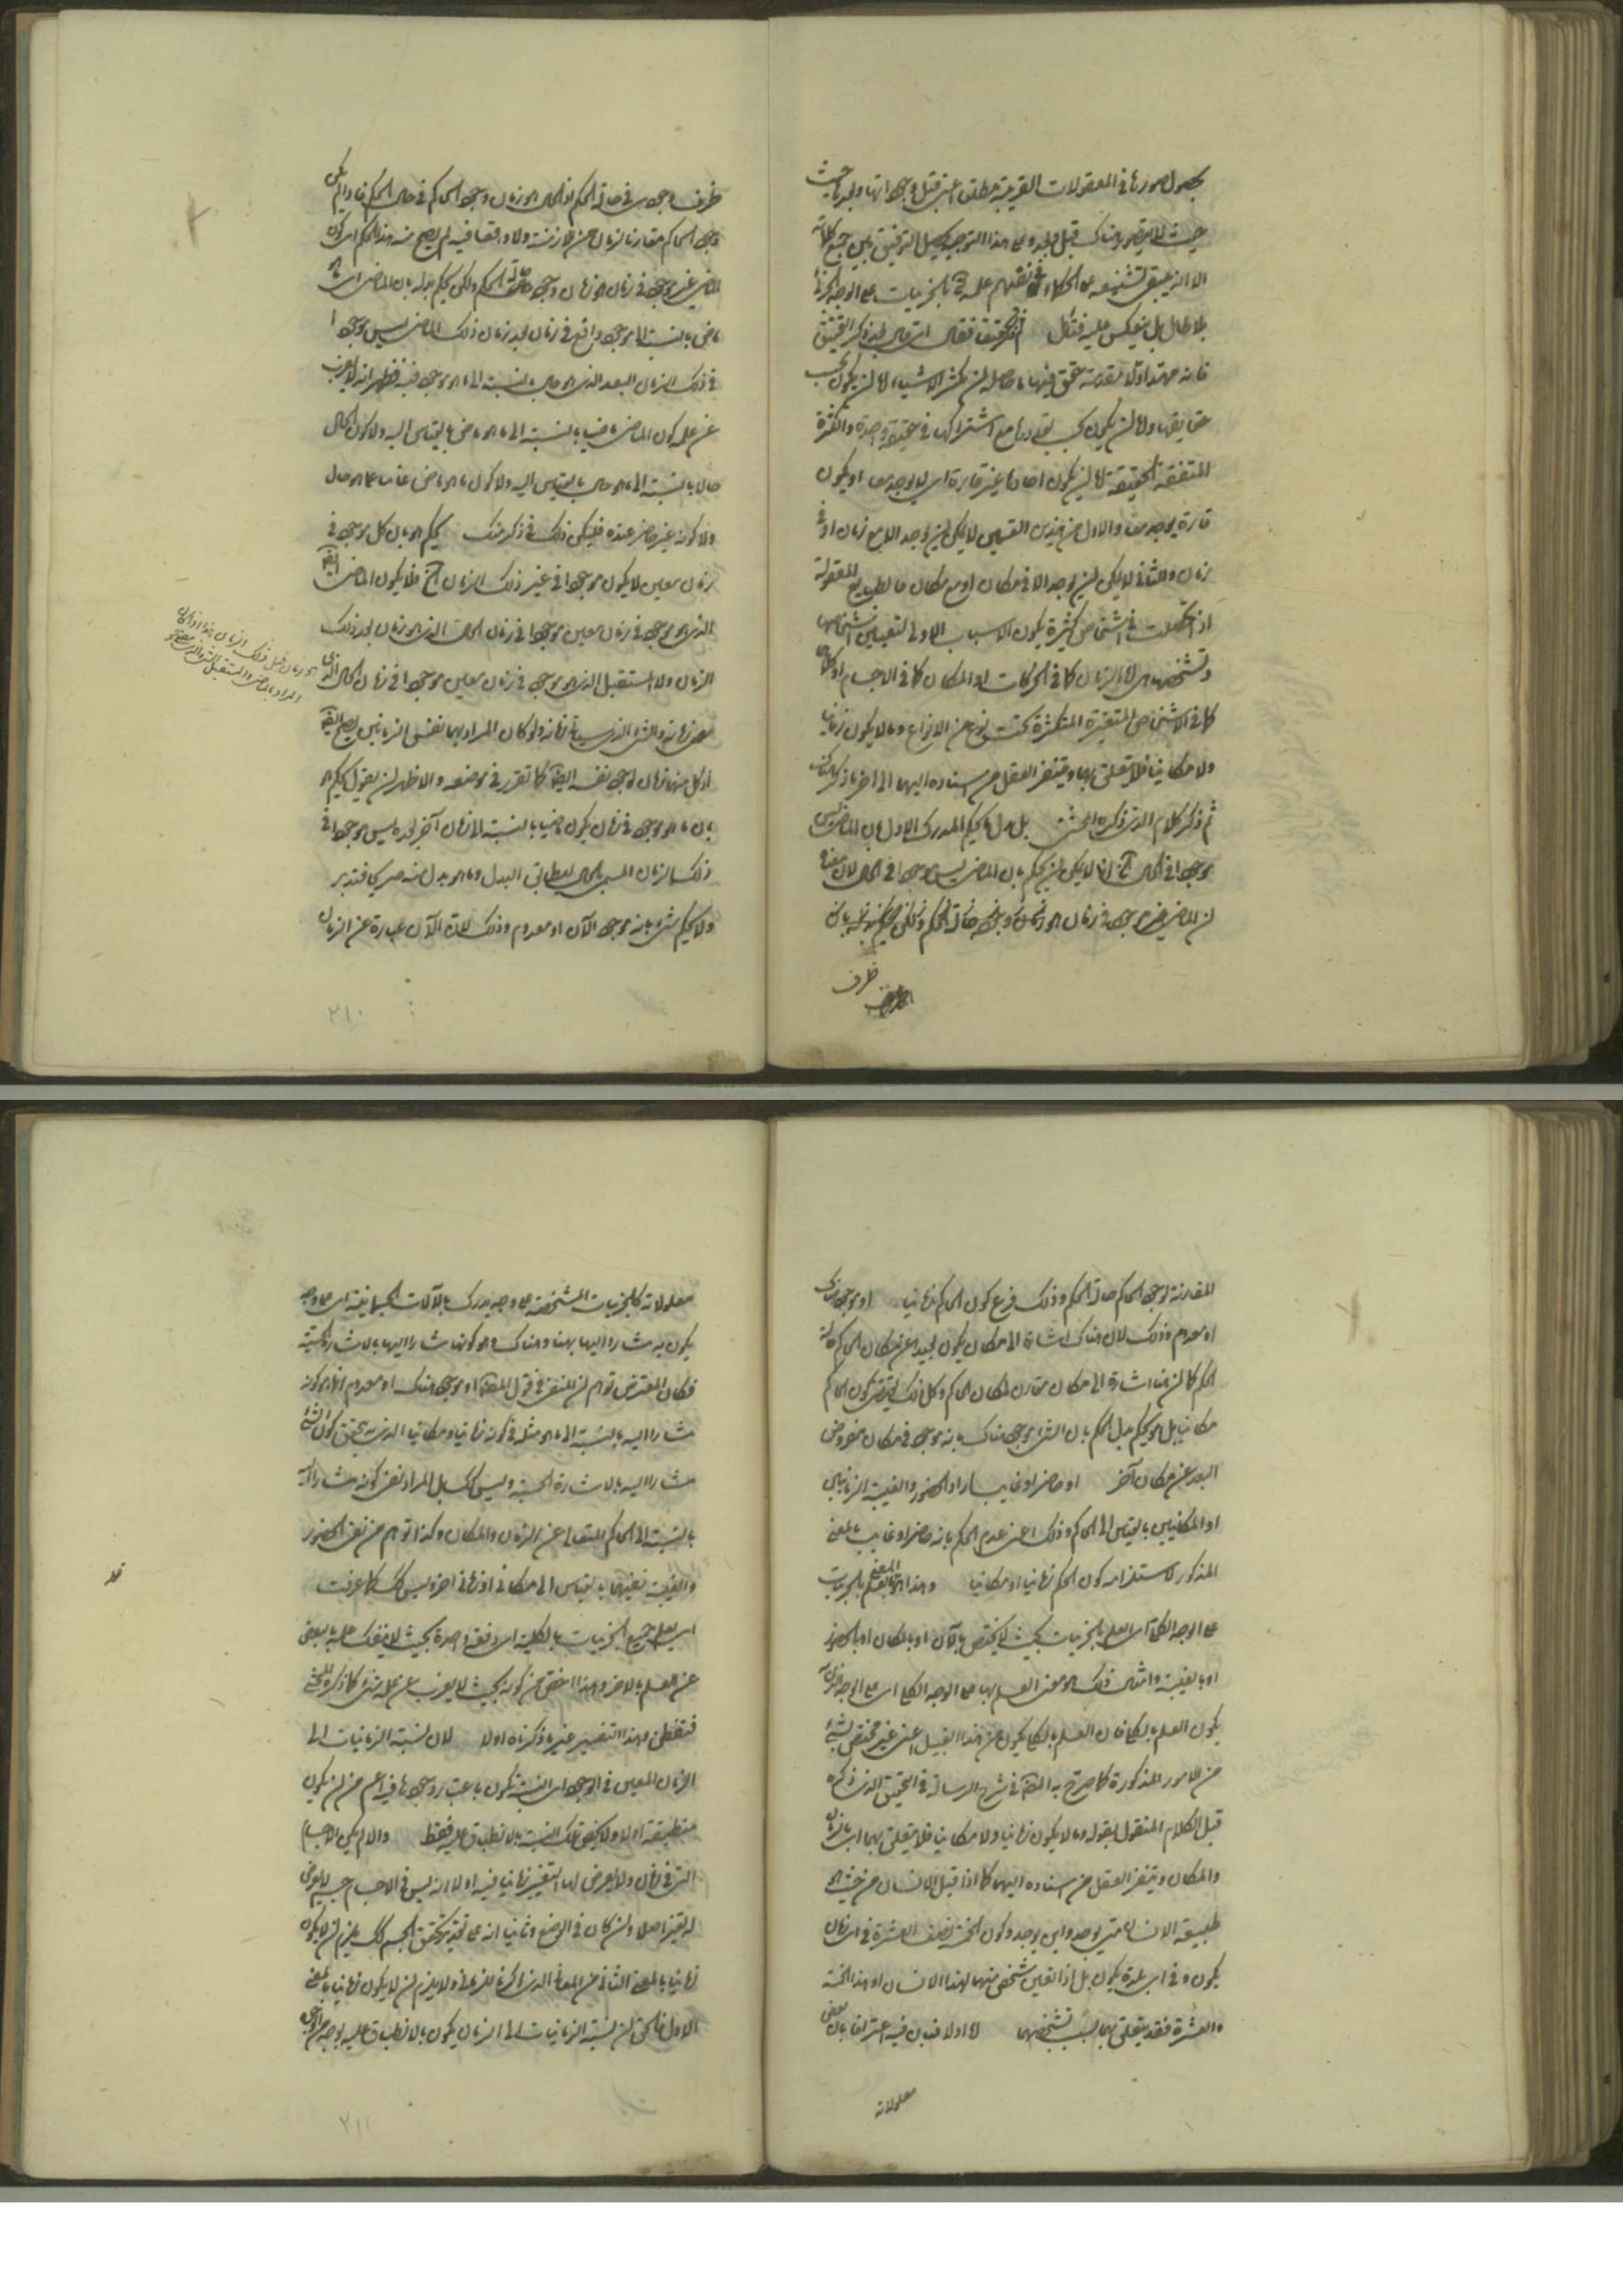 بحصول صورها في المعقولات القريبة مطلقا اعني قبل وجوداتها وبعدها حيث
حيث لا يتصور هناك قبل وبعد وعلى هذا التوجيه يحصل التوفيق بين جميع كلماته
الا انه يبقى تشنيعه على الحكماء في نفيهم علمه تعالى بالجزئيات على الوجه الجزئي
بلا طائل بل ينعكس عليه فتأمل
فانه مهد اولا مقدمة حقق فيها ما حاصله ان تكثر الاشياء اما ان يكون بحسب
حقايقها واما ان يكون بحسب تعددها مع اشتراكها في حقيقة واحدة والكثرة
المتفقة الحقيقة اما ان يكون احادها غير قارة اي لا يوجد معا او يكون
قارة يوجد معا والاول من هذين القسمين لا يمكن ان يوجد الا مع زمان او في
زمان والثاني لا يمكن ان يوجد الا في مكان او مع مكان فالطبايع المعقولة
اذا تحصلت في اشخاص كثيرة يكون الاسباب الاولى لتعيين اشخاصها
وتشخصها هي اما الزمان كما في الحركات او المكان كما في الاجسام او كلاهما
كما في الاشخاص المتغيرة المتكثرة تحت نوع من الانواع وما لا يكون زمانيا
ولا مكانيا فلا يتعلق بهما ويتنفر العقل من اسناده اليهما الى اخر ما ذكر هناك
ثم ذكر كلام الذي ذكره المحشي بل بدل ما يحكم المدرك الاول بان الماضي ليس
موجودا في الحال انما لا يمكن ان يحكم بان الماضي ليس موجودا في الحال لان معناه
ان الماضي غير موجود في زمان هو زمان وجود حالة الحكم ولكن يحكم بدله بان
ظرف
ظرف وجوده في حالة الحكم او الحال هو زمان وجود الحاكم في حال الحكم فما لم يكن
وجود الحاكم مقارنا لزمان من الازمنة ولا واقعا فيه لم يصح منه هذا الحكم اي كون
الماضي غير موجود في زمان هو زمان وجود حالة الحكم ولكن يحكم بدله بان الماضي اي ما هو
ماض بالنسبة الى موجود واقع في زمان بعد زمان ذلك الماضي ليس موجودا
في ذلك الزمان البعد الذي هو حال بالنسبة الى ما هو موجود فيه فظهر انه لا يعزب
عن علمه كون الماضي ماضيا بالنسبة الى ما هو ماض بالقياس اليه ولا كون الحال
حالا بالنسبة الى ما هو حال بالقياس اليه ولا كون ما هو ماض غائبا عما هو حال
ولا كونه غير حاضر عنده فليكن ذلك في ذكر منك يحكم هو بان كل موجود في
زمان معين لا يكون موجودا في غير ذلك الزمان فلا يكون الماضي ايضا
الذي هو موجود في زمان معين موجودا في زمان الحال الذي هو زمان بعد ذلك
الزمان ولا المستقبل الذي هو موجود في زمان معين موجودا في زمان الحال الذي
هو زمان قبل ذلك الزمان هذا اذا كان
المراد بالماضي والمستقبل الشيء الذي مضى
مضى زمانه والشيء الذي سيأتي زمانه ولو كان المراد بهما نفس الزمانين يصح ايضا
اذ كل منهما زمان لوجود نفسه ايضا كما تقرر في موضعه والاظهر ان يقول يحكم هو
بان ما هو موجود في زمان يكون ماضيا بالنسبة لزمان آخر بعده ليس موجودا في
ذلك الزمان المسمى بالحال ليطابق البدل وما هو بدل منه صريحا فتدبر
ولا يحكم بشيء بانه موجود الآن او معدوم وذلك لان الآن عبارة عن الزمان
٢١٠
المقارنة لوجود الحاكم حالة الحكم وذلك فرع كون الحاكم زمانيا او موجود هناك
او معدوم وذلك لان هناك اشارة الى مكان يكون بعيدا عن مكان الحاكم حالة
الحكم كما ان هنا اشارة الى مكان مقارن لمكان الحاكم وكل ذلك يقتضي كون الحاكم
مكانيا بل هو يحكم بدل الحكم بان الشيء موجود هناك بانه موجود في مكان مفروض
البعد عن مكان آخر او حاضر او غايب اراد الحضور والغيبة الزمانيين
او المكانيين بالقياس الى الحاكم وذلك اعني عدم الحكم بانه حاضر او غايب بالمعنى
المذكور لاستلزامه كون الحاكم زمانيا او مكانيا وهذا هو العلم بالجزئيات
على الوجه الكلي اي العلم بالجزئيات بحيث لا يختص بالآن او بالمكان او بالحضور
او بالغيبة وامثال ذلك هو معنى العلم بها على الوجه الكلي اي على الوجه الذي
يكون العلم بالكلي فان العلم بالكلي يكون من هذا القبيل اعني غير مختص بشيء
من الامور المذكورة كما صرح به المصنف في شرح الرسالة في التحقيق الذي ذكره
قبل الكلام المنقول بقوله وما لا يكون زمانيا ولا مكانيا فلا يتعلق بهما اي بالزمان
والمكان ويتنفر العقل من اسناده اليهما كما اذا قيل الانسان من حيث هو
طبيعة الانسان متى يوجد واين يوجد وكون الخمسة نصف العشرة في اي زمان
يكون وفي اي بلدة يكون بل اذا تعين شخص منهما كهذا الانسان او هذه الخمسة
والعشرة فقد يتعلق بهما بسبب تشخصهما اما اولا فبان فيه اعترافا بان بعض
معلولاته
معلولاته كالجزئيات المشخصة على وجه يدرك بالآلات الجسمانية اي على وجه
يكون به مشارا اليها بهنا وهناك وهو كونها مشارا اليها بالاشارة الحسية
فكان المعترض توهم ان المنفي في قول المصنف او موجود هناك او معدوم انما هو كونه
مشارا اليه بالنسبة الى ما هو مثله في كونه زمانيا ومكانيا الذي به يتحقق كون الشيء
مشارا اليه بالاشارة الحسية وليس كذلك بل المراد نفي كونه مشارا اليه
بالنسبة الى الحاكم المتعالي عن الزمان والمكان وكذا توهم من نفي الحضور
والغيبة نفيهما بالقياس الى مكاني او زماني آخر وليس كذلك كما عرفت
اي يعلم جميع الجزئيات بالكلية اي دفعة واحدة بحيث لا ينفك علمه بالبعض
عن العلم بالاخر وهذا اخص من كونه بحيث لا يعزب عن علمه شيء كما ذكره المحشي
فتفطن وهذا التفسير غير ما ذكرناه اولا لان نسبة الزمانيات الى
الزمان المعين في الوجود اي النسبة تكون باعتبار وجودها فيه اعم من ان يكون
منطبقة اولا ولا يختص تلك النسبة بالانطباق عليه فقط والا لم يكن الاجسام
التي في زمان ولا يعرض لها التغير زمانيا فيه اولا انه ليس في الاجسام جسم لا يعرض
له تغير اصلا وان كان في الوضع وثانيا انه على تقدير تحقق الجسم كذلك يلزم ان لا يكون
زمانيا بالمعنى الثاني من المعاني الذي ذكرنا للزماني ولا يلزم ان لا يكون زمانيا بالمعنى
الاول فالحق ان نسبة الزمانيات الى الزمان يكون بالانطباق عليه بوجه من الوجوه
٢١١